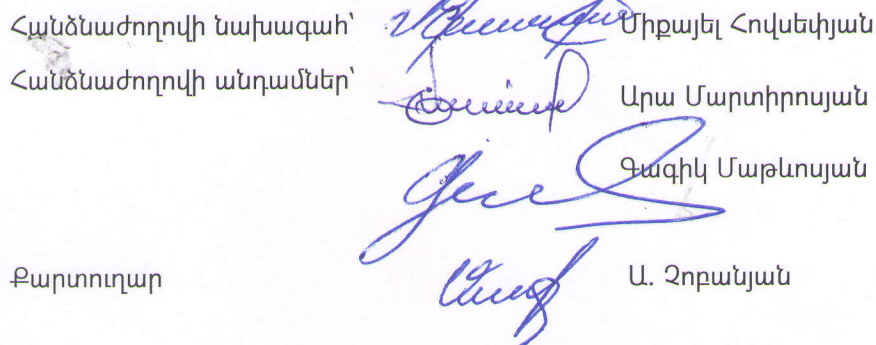 Հանձնաժողովի նախագահ՝ Միքայել Հովսեփյան
Հանձնաժողովի անդամներ՝
Արա Մարտիրոսյան
Գագիկ Մաթևոսյան
Քարտուղար Ա. Չոբանյան